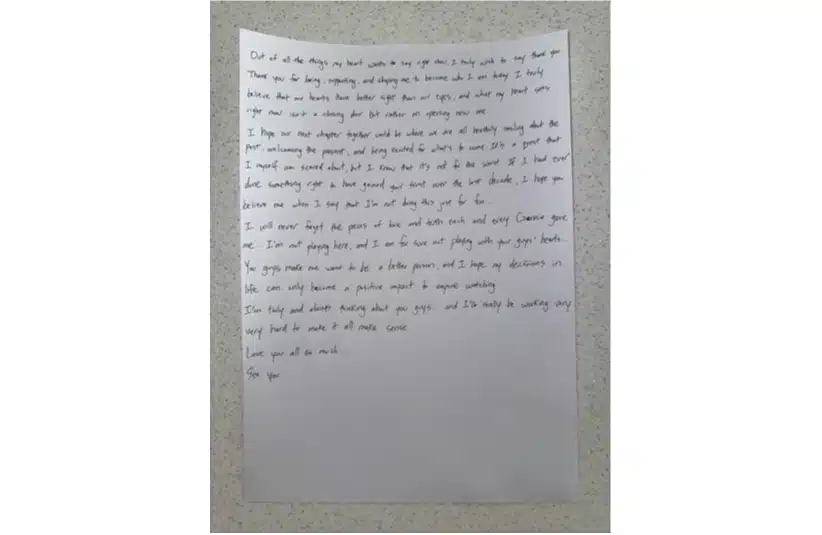 Out of all the things my heart wants to say right now, I truly wish to say thank you.
Thank you for being, supporting, and shaping me to become who I am today. I truly
believe that our hearts have better sight than our eyes, and what my heart sees
right now isn't a closing door but rather an opening new one.
I hope our next chapter together could be where we are all heartily smiling about the
past, welcoming the present, and being excited for what's to come. It's a great that
I myself am scared about, but I know that it's not for the worst. If I had ever
done something right to have gained your trust over the last decade, I hope you
believe me when I say that I'm not doing this just for fun...
I will never forget the pieces of love and each and every gave
me... I'm not playing here, and I am for sure not playing with your guys' hearts...
You guys make me want to be a better person, and I hope my decisions in
life can only become a positive impact to anyone watching
I'm truly and always thinking about you guys... and I'll really be working very
very hard to make it all make sense
Love you all so much...
See you